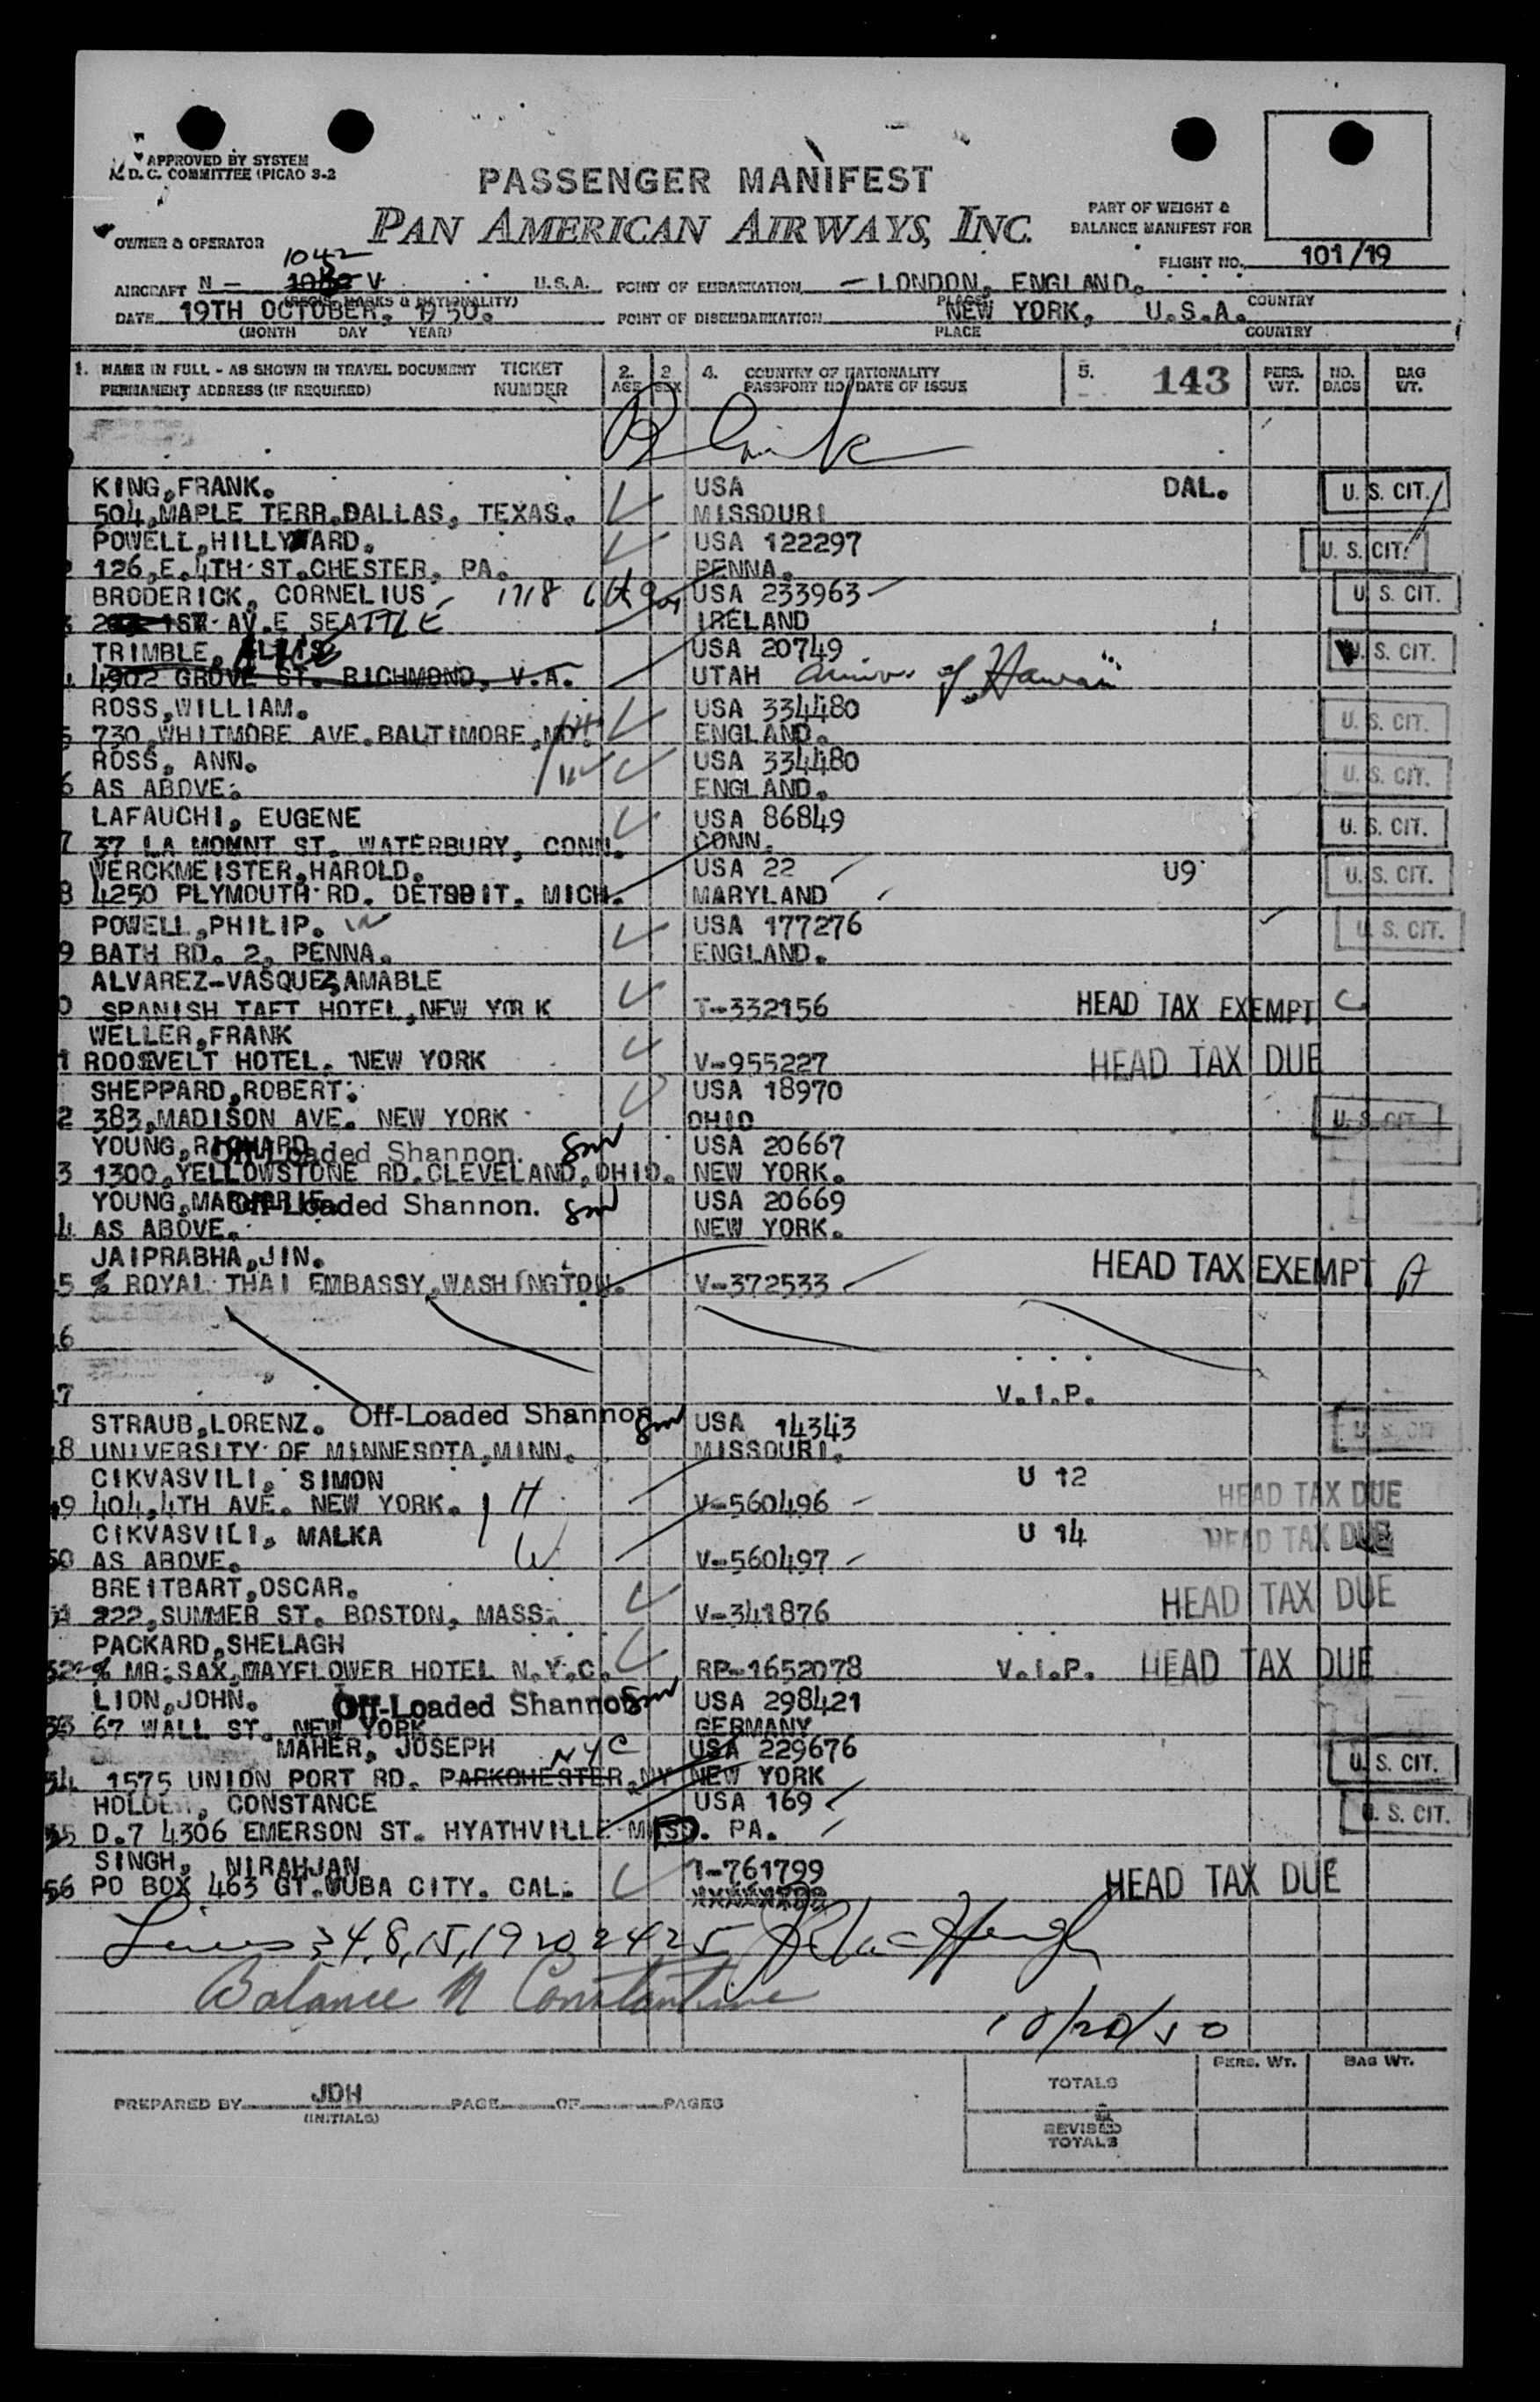 APPROVED BY SYSTEM
D. C. COMMITTEE (PICAO S-2
PASSENGER MANIFEST
PAN AMERICAN AIRWAYS, INC.
PART OF WEIGHT &
BALANCE MANIFEST FOR
OWNER & OPERATOR
1042
FLIGHT NO. 101/19
AIRCRAFT N - V U.S.A. POINT OF EMBARKATION - LONDON, ENGLAND.
(REGIS. MARKS & NATIONALITY) PLACE COUNTRY
DATE 19TH OCTOBER. 1950. POINT OF DISEMBARKATION NEW YORK, U.S.A.
(MONTH DAY YEAR) PLACE COUNTRY
1. NAME IN FULL - AS SHOWN IN TRAVEL DOCUMENT TICKET 2. 3 4. COUNTRY OF NATIONALITY 5. 143 PERS. NO. BAG
PERMANENT ADDRESS (IF REQUIRED) NUMBER AGE SEX PASSPORT NO/DATE OF ISSUE WT. BAGS WT.
Blank
KING,FRANK. USA DAL. U. S. CIT.
504,MAPLE TERR.DALLAS, TEXAS. MISSOURI
POWELL,HILLYARD. USA 122297 U. S. CIT.
126,E.4TH ST.CHESTER, PA. PENNA.
BRODERICK, CORNELIUS 1718 6th USA 233963 U. S. CIT.
1ST AV.E SEATTLE IRELAND
TRIMBLE, USA 20749 U. S. CIT.
4902 GROVE ST. RICHMOND, V.A. UTAH Univ. of Hawaii
ROSS,WILLIAM. USA 334480 U. S. CIT.
730,WHITMORE AVE.BALTIMORE,MD. H ENGLAND.
ROSS, ANN. USA 334480 U. S. CIT.
6 AS ABOVE. W ENGLAND.
LAFAUCHI, EUGENE USA 86849 U. S. CIT.
7 37 LA MOMNT ST. WATERBURY, CONN. CONN.
WERCKMEISTER,HAROLD. USA 22 U9 U. S. CIT.
8 4250 PLYMOUTH RD. DETROIT. MICH. MARYLAND
POWELL,PHILIP. USA 177276 U. S. CIT.
9 BATH RD. 2, PENNA. ENGLAND.
ALVAREZ-VASQUEZ,AMABLE
0 SPANISH TAFT HOTEL,NEW YORK T-332156 HEAD TAX EXEMPT C
WELLER,FRANK
1 ROOSEVELT HOTEL. NEW YORK V-955227 HEAD TAX DUE
SHEPPARD,ROBERT. USA 18970
2 383,MADISON AVE. NEW YORK OHIO U. S. CIT.
YOUNG,RICHARD Off-Loaded Shannon. USA 20667
3 1300,YELLOWSTONE RD.CLEVELAND,OHIO. NEW YORK.
YOUNG,MARJORIE Off-Loaded Shannon. USA 20669
4 AS ABOVE. NEW YORK.
JAIPRABHA,JIN.
5 % ROYAL THAI EMBASSY,WASHINGTON. V-372533 HEAD TAX EXEMPT A
6
7 V.I.P.
STRAUB,LORENZ. Off-Loaded Shannon USA 14343
8 UNIVERSITY OF MINNESOTA,MINN. MISSOURI. U. S. CIT
CIKVASVILI, SIMON U 12
49 404,4TH AVE. NEW YORK. H V-560496 HEAD TAX DUE
CIKVASVILI, MALKA U 14
50 AS ABOVE. W V-560497 HEAD TAX DUE
BREITBART,OSCAR.
51 222,SUMMER ST. BOSTON, MASS. V-341876 HEAD TAX DUE
PACKARD,SHELAGH
52 % MR.SAX,MAYFLOWER HOTEL N.Y.C. RP-1652078 V.I.P. HEAD TAX DUE
LION,JOHN. Off-Loaded Shannon USA 298421
53 67 WALL ST. NEW YORK GERMANY
MAHER, JOSEPH NYC USA 229676
54 1575 UNION PORT RD. PARKCHESTER,NY NEW YORK U. S. CIT.
HOLDEN, CONSTANCE USA 169
55 D.7 4306 EMERSON ST. HYATHVILLE MD. PA. U. S. CIT.
SINGH, NIRAHJAN I-761799
56 PO BOX 463 GT.YUBA CITY. CAL. HEAD TAX DUE
Lines 34,8,15,19 20 24 25
Balance N Constantine
10/20/50
PERS. WT. BAG WT.
TOTALS
PREPARED BY JDH PAGE OF PAGES
(INITIALS)
REVISED
TOTALS